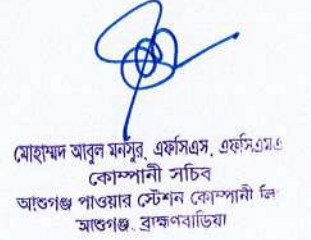 মোহাম্মদ আবুল মনসুর, এফসিএস, এফসিএমএ
কোম্পানী সচিব
আশুগঞ্জ পাওয়ার স্টেশন কোম্পানী লি
আশুগঞ্জ, ব্রাহ্মণবাড়িয়া